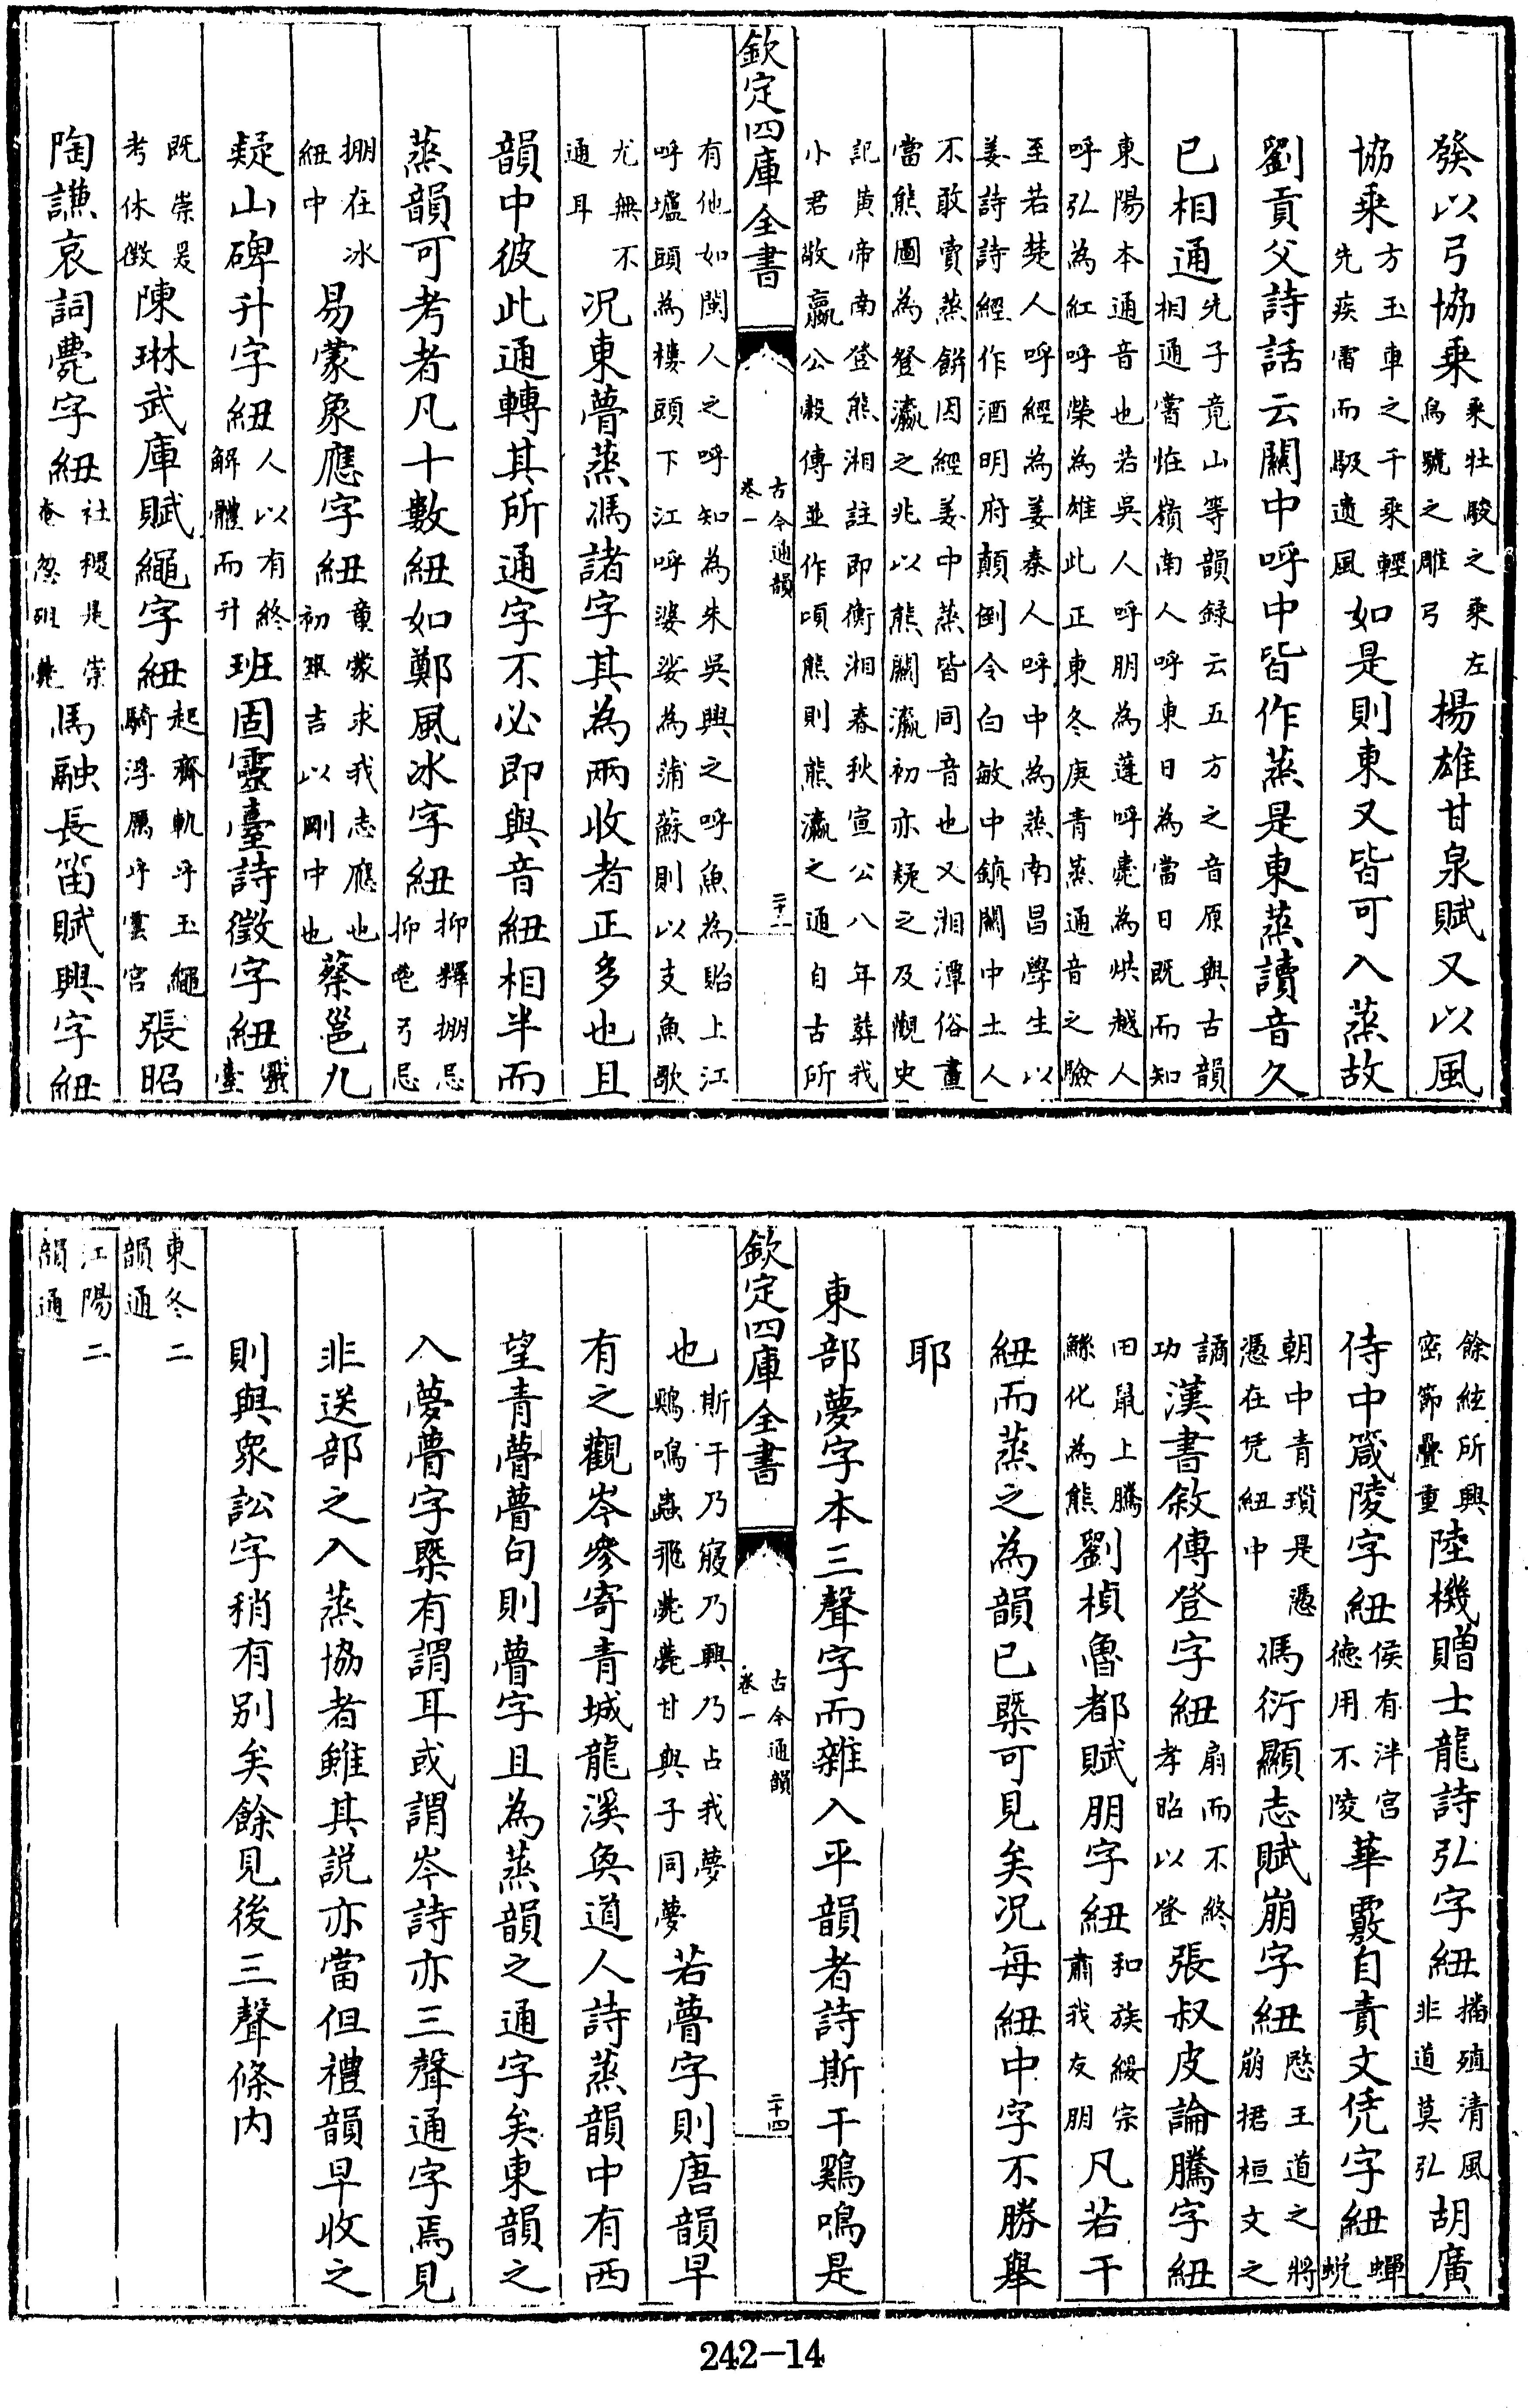 發以弓協乘乘牡駿之乘左烏號之雕弓揚雄甘泉賦又以風
協乘方玉車之千乘輕先疾雷而馺遺風如是則東又皆可入蒸故
劉貢父詩話云關中呼中皆作蒸是東蒸讀音久
已相通先子竟山等韻録云五方之音原與古韻相通嘗怪嶺南人呼東日為當日既而知
東陽本通音也若吳人呼朋為蓬呼甍為烘越人呼弘為紅呼榮為雄此正東冬庚青蒸通音之驗
至若楚人呼經為姜秦人呼中為蒸南昌學生以姜詩詩經作酒明府顛倒令白敏中鎮關中土人
不敢賣蒸餅因經姜中蒸皆同音也又湘潭俗畫當熊圖為登瀛之兆以熊關瀛初亦疑之及觀史
記黄帝南登熊湘註即衡湘春秋宣公八年葬我小君敬嬴公穀傳並作頃熊則熊瀛之通自古所
欽定四庫全書 古今通韻 卷一
有他如閩人之呼知為朱吳興之呼魚為貽上江呼壚頭為樓頭下江呼婆娑為蒲蘇則以支魚歌
尤無不通耳况東瞢蒸馮諸字其為兩收者正多也且
韻中彼此通轉其所通字不必即與音紐相半而
蒸韻可考者凡十數紐如鄭風冰字紐抑釋掤忌抑鬯弓忌
掤在冰紐中易蒙象應字紐童蒙求我志應也初筮吉以剛中也蔡邕九
疑山碑升字紐人以有終解體而升班固靈臺詩徵字紐靈臺
既崇晷考休徵陳琳武庫賦繩字紐起齊軌乎玉繩騎浮厲乎雲宮張昭
陶謙哀詞薨字紐社稷是崇奄忽殂薨馬融長笛賦興字紐
餘絃所興密節疊重陸機贈士龍詩弘字紐播殖清風非道莫弘胡廣
侍中箴陵字紐侯有泮宮德用不陵華覈自責文凭字紐蟬蛻
朝中青瑣是憑憑在凭紐中馮衍顯志賦崩字紐愍王道之將崩捃桓文之
譎功漢書敘傳登字紐扇而不終孝昭以登張叔皮論騰字紐
田鼠上騰鯀化為熊劉楨魯都賦朋字紐和族綏宗肅我友朋凡若干
紐而蒸之為韻已槩可見矣况每紐中字不勝舉
耶
東部夢字本三聲字而雜入平韻者詩斯干鷄鳴是
欽定四庫全書 古今通韻 卷一 二十四
也斯干乃寢乃興乃占我夢鷄鳴蟲飛薨薨甘與子同夢若瞢字則唐韻早
有之觀岑參寄青城龍溪奐道人詩蒸韻中有西
望青瞢瞢句則瞢字且為蒸韻之通字矣東韻之
入夢瞢字槩有謂耳或謂岑詩亦三聲通字焉見
非送部之入蒸協者雖其説亦當但禮韻早收之
則與衆訟字稍有别矣餘見後三聲條内
東冬二韻通
江陽二韻通
242-14